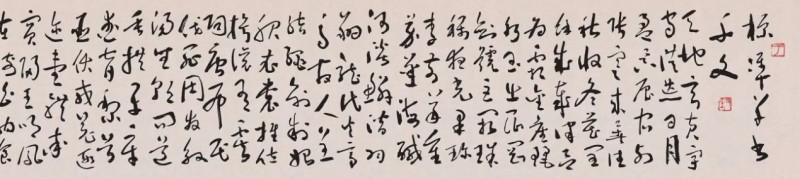 標準草書
千文
天地玄黃宇
宙洪荒日月
盈昃辰宿列
張寒來暑往
秋收冬藏閏
餘成歲律呂
為霜金生麗
水玉出崑岡
劍號巨闕珠
稱夜光果珍
李柰菜重
芥薑海鹹
河淡鱗潛羽
翔龍師火帝
鳥官人皇
始制
服衣裳推位
讓國有虞
陶唐弔民
伐罪周發殷
湯坐朝問道
垂拱平章
愛育黎首
臣伏戎羌遐
邇壹體率
賓歸王鳴鳳
在白駒食